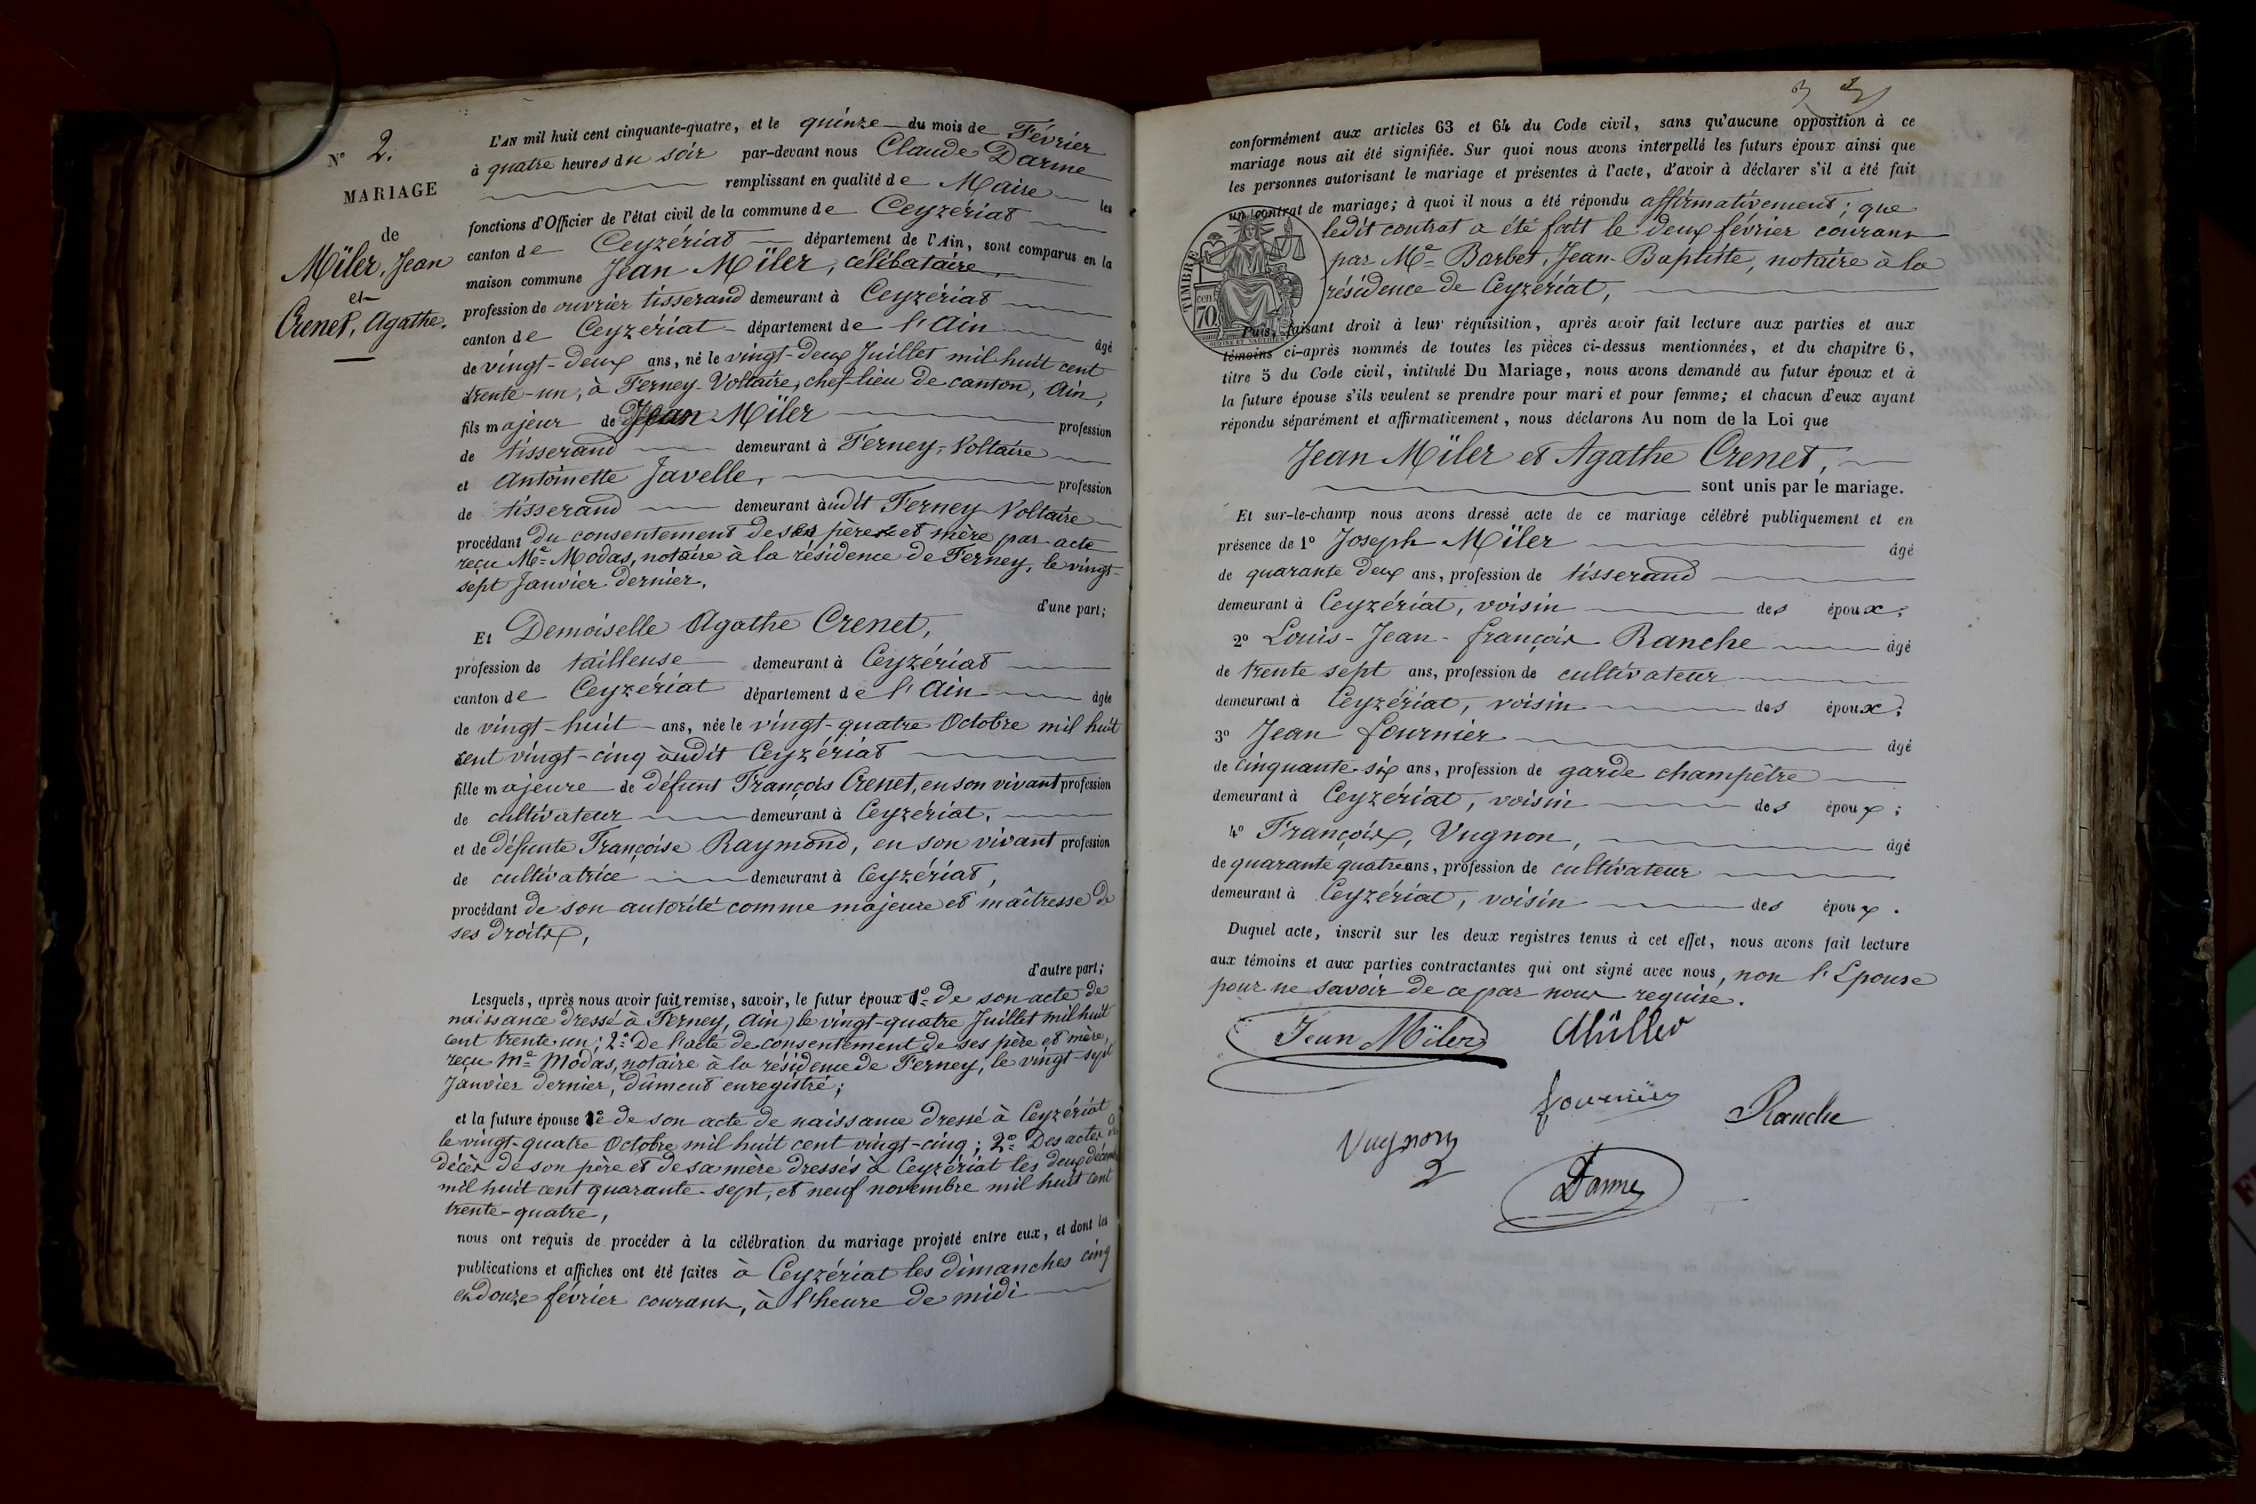 N° 2.
MARIAGE
de
Mïler, Jean
et
Crenet, Agathe.
L'AN mil huit cent cinquante-quatre, et le quinze du mois de Février
à quatre heures du soir par-devant nous Claude Darme
remplissant en qualité de Maire les
fonctions d'Officier de l'état civil de la commune de Ceyzériat
canton de Ceyzériat département de l'Ain, sont comparus en la
maison commune Jean Mïler, célibataire,
profession de ouvrier tisserand demeurant à Ceyzériat
canton de Ceyzériat département de l'Ain âgé
de vingt-deux ans, né le vingt-deux Juillet mil huit cent
trente-un, à Ferney-Voltaire, chef-lieu de canton, Ain,
fils majeur de Jean Mïler profession
de tisserand demeurant à Ferney-Voltaire
et Antoinette Javelle, profession
de tisserand demeurant àudit Ferney Voltaire
procédant du consentement de ses père et mère par acte
reçu Me Modas, notaire à la résidence de Ferney, le vingt-
sept Janvier dernier,
d'une part;
Et Demoiselle Agathe Crenet,
profession de tailleuse demeurant à Ceyzériat
canton de Ceyzériat département de l'Ain âgée
de vingt-huit ans, née le vingt-quatre Octobre mil huit
cent vingt-cinq àudit Ceyzériat
fille majeure de défunt François Crenet, en son vivant profession
de cultivateur demeurant à Ceyzériat,
et de défunte Françoise Raymond, en son vivant profession
de cultivatrice demeurant à Ceyzériat,
procédant de son autorité comme majeure et maîtresse de
ses droits,
d'autre part;
Lesquels, après nous avoir fait remise, savoir, le futur époux 1° de son acte de
naissance dressé à Ferney, Ain, le vingt-quatre Juillet mil huit
cent trente un; 2° De l'acte de consentement de ses père et mère,
reçu Me Modas, notaire à la résidence de Ferney, le vingt-sept
Janvier dernier, dûment enregistré;
et la future épouse 1° de son acte de naissance dressé à Ceyzériat
le vingt-quatre Octobre mil huit cent vingt-cinq; 2° Des actes de
décès de son père et de sa mère dressés à Ceyzériat les deux
mil huit cent quarante-sept, et neuf novembre mil huit cent
trente-quatre,
nous ont requis de procéder à la célébration du mariage projeté entre eux, et dont les
publications et affiches ont été faites à Ceyzériat les dimanches cinq
et douze février courant, à l'heure de midi
conformément aux articles 63 et 64 du Code civil, sans qu'aucune opposition à ce
mariage nous ait été signifiée. Sur quoi nous avons interpellé les futurs époux ainsi que
les personnes autorisant le mariage et présentes à l'acte, d'avoir à déclarer s'il a été fait
un contrat de mariage; à quoi il nous a été répondu affirmativement; que
ledit contrat a été fait le deux février courant
par Me Barbet, Jean-Baptiste, notaire à la
résidence de Ceyzériat,
TIMBRE
cen
70
Puis, faisant droit à leur réquisition, après avoir fait lecture aux parties et aux
témoins ci-après nommés de toutes les pièces ci-dessus mentionnées, et du chapitre 6,
titre 5 du Code civil, intitulé Du Mariage, nous avons demandé au futur époux et à
la future épouse s'ils veulent se prendre pour mari et pour femme; et chacun d'eux ayant
répondu séparément et affirmativement, nous déclarons Au nom de la Loi que
Jean Mïler et Agathe Crenet,
sont unis par le mariage.
Et sur-le-champ nous avons dressé acte de ce mariage célébré publiquement et en
présence de 1° Joseph Mïler âgé
de quarante deux ans, profession de tisserand
demeurant à Ceyzériat, voisin des époux;
2° Louis-Jean-François Ranche âgé
de trente sept ans, profession de cultivateur
demeurant à Ceyzériat, voisin des époux;
3° Jean Fournier âgé
de cinquante-six ans, profession de garde champêtre
demeurant à Ceyzériat, voisin des époux;
4° François, Vugnon, âgé
de quarante quatre ans, profession de cultivateur
demeurant à Ceyzériat, voisin des époux.
Duquel acte, inscrit sur les deux registres tenus à cet effet, nous avons fait lecture
aux témoins et aux parties contractantes qui ont signé avec nous, non l'Epouse
pour ne savoir de ce par nous requise.
Jean Mïler
fournier
Ranche
Vugnon
Darme